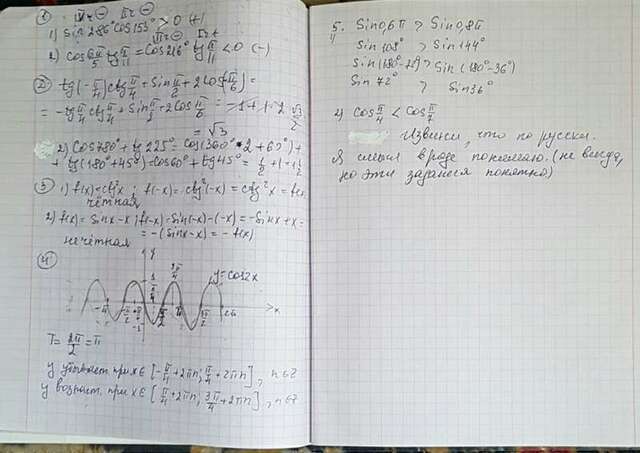 ①
IV г ⊖ II г ⊖
1) sin 286° cos 153° > 0 (+)
III г ⊖ I г +
2) cos 6π/5 tg π/11 = cos 216° tg π/11 < 0 (−)
② tg(-π/4) ctg π/4 + sin π/2 + 2cos(-π/6) =
= -tg π/4 ctg π/4 + sin π/2 + 2cos π/6 = -1 + 1 + 2 √3/2
= √3
2) cos 780° + tg 225° = cos(360° · 2 + 60°) +
+ tg(180° + 45°) = cos 60° + tg 45° = 1/2 + 1 = 1 1/2
③ 1) f(x) = ctg²x ; f(-x) = ctg²(-x) = ctg²x = f(x)
чётная
2) f(x) = sinx - x ; f(-x) = sin(-x) - (-x) = -sinx + x =
= -(sinx - x) = -f(x)
нечётная
④
y
y = cos2x
x
T = 2π/2 = π
y убывает при x ∈ [-π/4 + 2πn; π/4 + 2πn], n ∈ Z
y возраст. при x ∈ [π/4 + 2πn; 3π/4 + 2πn], n ∈ Z
5. sin 0,6π > sin 0,8π
1)
sin 108° > sin 144°
sin(180° - 72°) > sin(180° - 36°)
sin 72° > sin 36°
2) cos π/4 < cos π/7
Извини, что по русски.
Я смысл вроде понимаю. (не всегда,
но эти задания понятно)